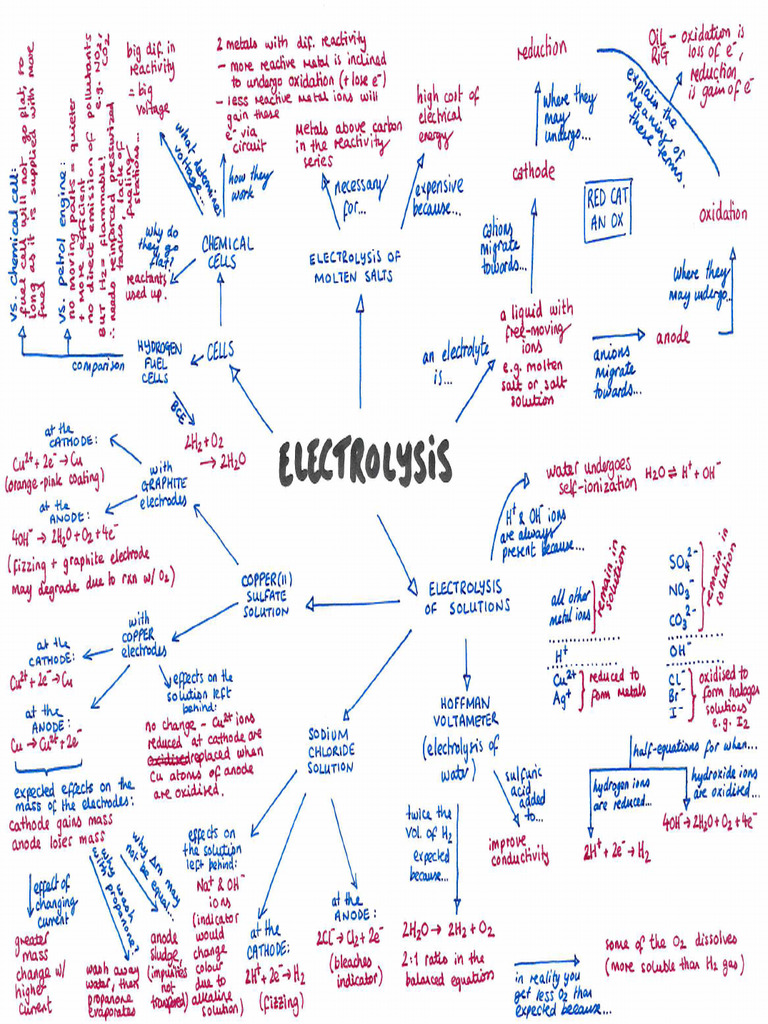 ELECTROLYSIS
CELLS
CHEMICAL
CELLS
what determines
voltage...
big dif. in
reactivity
= big
voltage
how they
work
2 metals with dif. reactivity
- more reactive metal is inclined
to undergo oxidation (+ lose e⁻)
- less reactive metal ions will
gain these
e⁻ via
circuit
why do
they go
flat?
reactants
used up.
HYDROGEN
FUEL
CELLS
comparison
vs. chemical cell:
fuel cell will not go flat, so
long as it is supplied with more
fuel
vs. petrol engine:
no moving parts = quieter
+ more efficient
no direct emission of pollutants
e.g. NO2,
CO2
BUT H2 = flammable!
∴ needs reinforced pressurized
tanks, lack of
fueling
stations...
BCE
2H₂ + O₂
→ 2H₂O
ELECTROLYSIS OF
MOLTEN SALTS
necessary
for...
metals above carbon
in the reactivity
series
expensive
because...
high cost of
electrical
energy
an electrolyte
is...
a liquid with
free-moving
ions
e.g. molten
salt or salt
solution
cations
migrate
towards...
cathode
where they
may
undergo...
reduction
anions
migrate
towards...
anode
where they
may undergo...
oxidation
RED CAT
AN OX
explain the
meaning of
these terms.
OIL - oxidation is
RIG loss of e⁻,
reduction
is gain of e⁻
ELECTROLYSIS
OF SOLUTIONS
H⁺ & OH⁻ ions
are always
present because...
water undergoes
self-ionization H₂O ⇌ H⁺ + OH⁻
all other
metal ions
remain in
solution
H⁺
Cu²⁺
Ag⁺
reduced to
form metals
SO₄²⁻
NO₃⁻
CO₃²⁻
remain in
solution
OH⁻
Cl⁻
Br⁻
I⁻
oxidised to
form halogen
solutions
e.g. I₂
half-equations for when...
hydrogen ions
are reduced...
2H⁺ + 2e⁻ → H₂
hydroxide ions
are oxidised...
4OH⁻ → 2H₂O + O₂ + 4e⁻
HOFFMAN
VOLTAMETER
(electrolysis of
water)
sulfuric
acid
added
to...
improve
conductivity
twice the
vol of H₂
expected
because...
2H₂O → 2H₂ + O₂
2:1 ratio in the
balanced equation
in reality you
get less O₂ than
expected because...
some of the O₂ dissolves
(more soluble than H₂ gas)
SODIUM
CHLORIDE
SOLUTION
at the
ANODE:
2Cl⁻ → Cl₂ + 2e⁻
(bleaches
indicator)
at the
CATHODE:
2H⁺ + 2e⁻ → H₂
(fizzing)
effects on
the solution
left behind:
Na⁺ & OH⁻
ions
(indicator
would
change
colour
due to
alkaline
solution)
COPPER(II)
SULFATE
SOLUTION
with
GRAPHITE
electrodes
at the
CATHODE:
Cu²⁺ + 2e⁻ → Cu
(orange-pink coating)
at the
ANODE:
4OH⁻ → 2H₂O + O₂ + 4e⁻
(fizzing + graphite electrode
may degrade due to rxn w/ O₂)
with
COPPER
electrodes
at the
CATHODE:
Cu²⁺ + 2e⁻ → Cu
at the
ANODE:
Cu → Cu²⁺ + 2e⁻
effects on the
solution left
behind:
no change - Cu²⁺ ions
reduced at cathode are
oxidised replaced when
Cu atoms of anode
are oxidised.
expected effects on the
mass of the electrodes:
cathode gains mass
anode loses mass
effect of
changing
current
greater
mass
change w/
higher
current
why wash
with propanone?
wash away
water, then
propanone
evaporates
why Δm may
not be equal...
anode
sludge
(impurities
not
transferred)